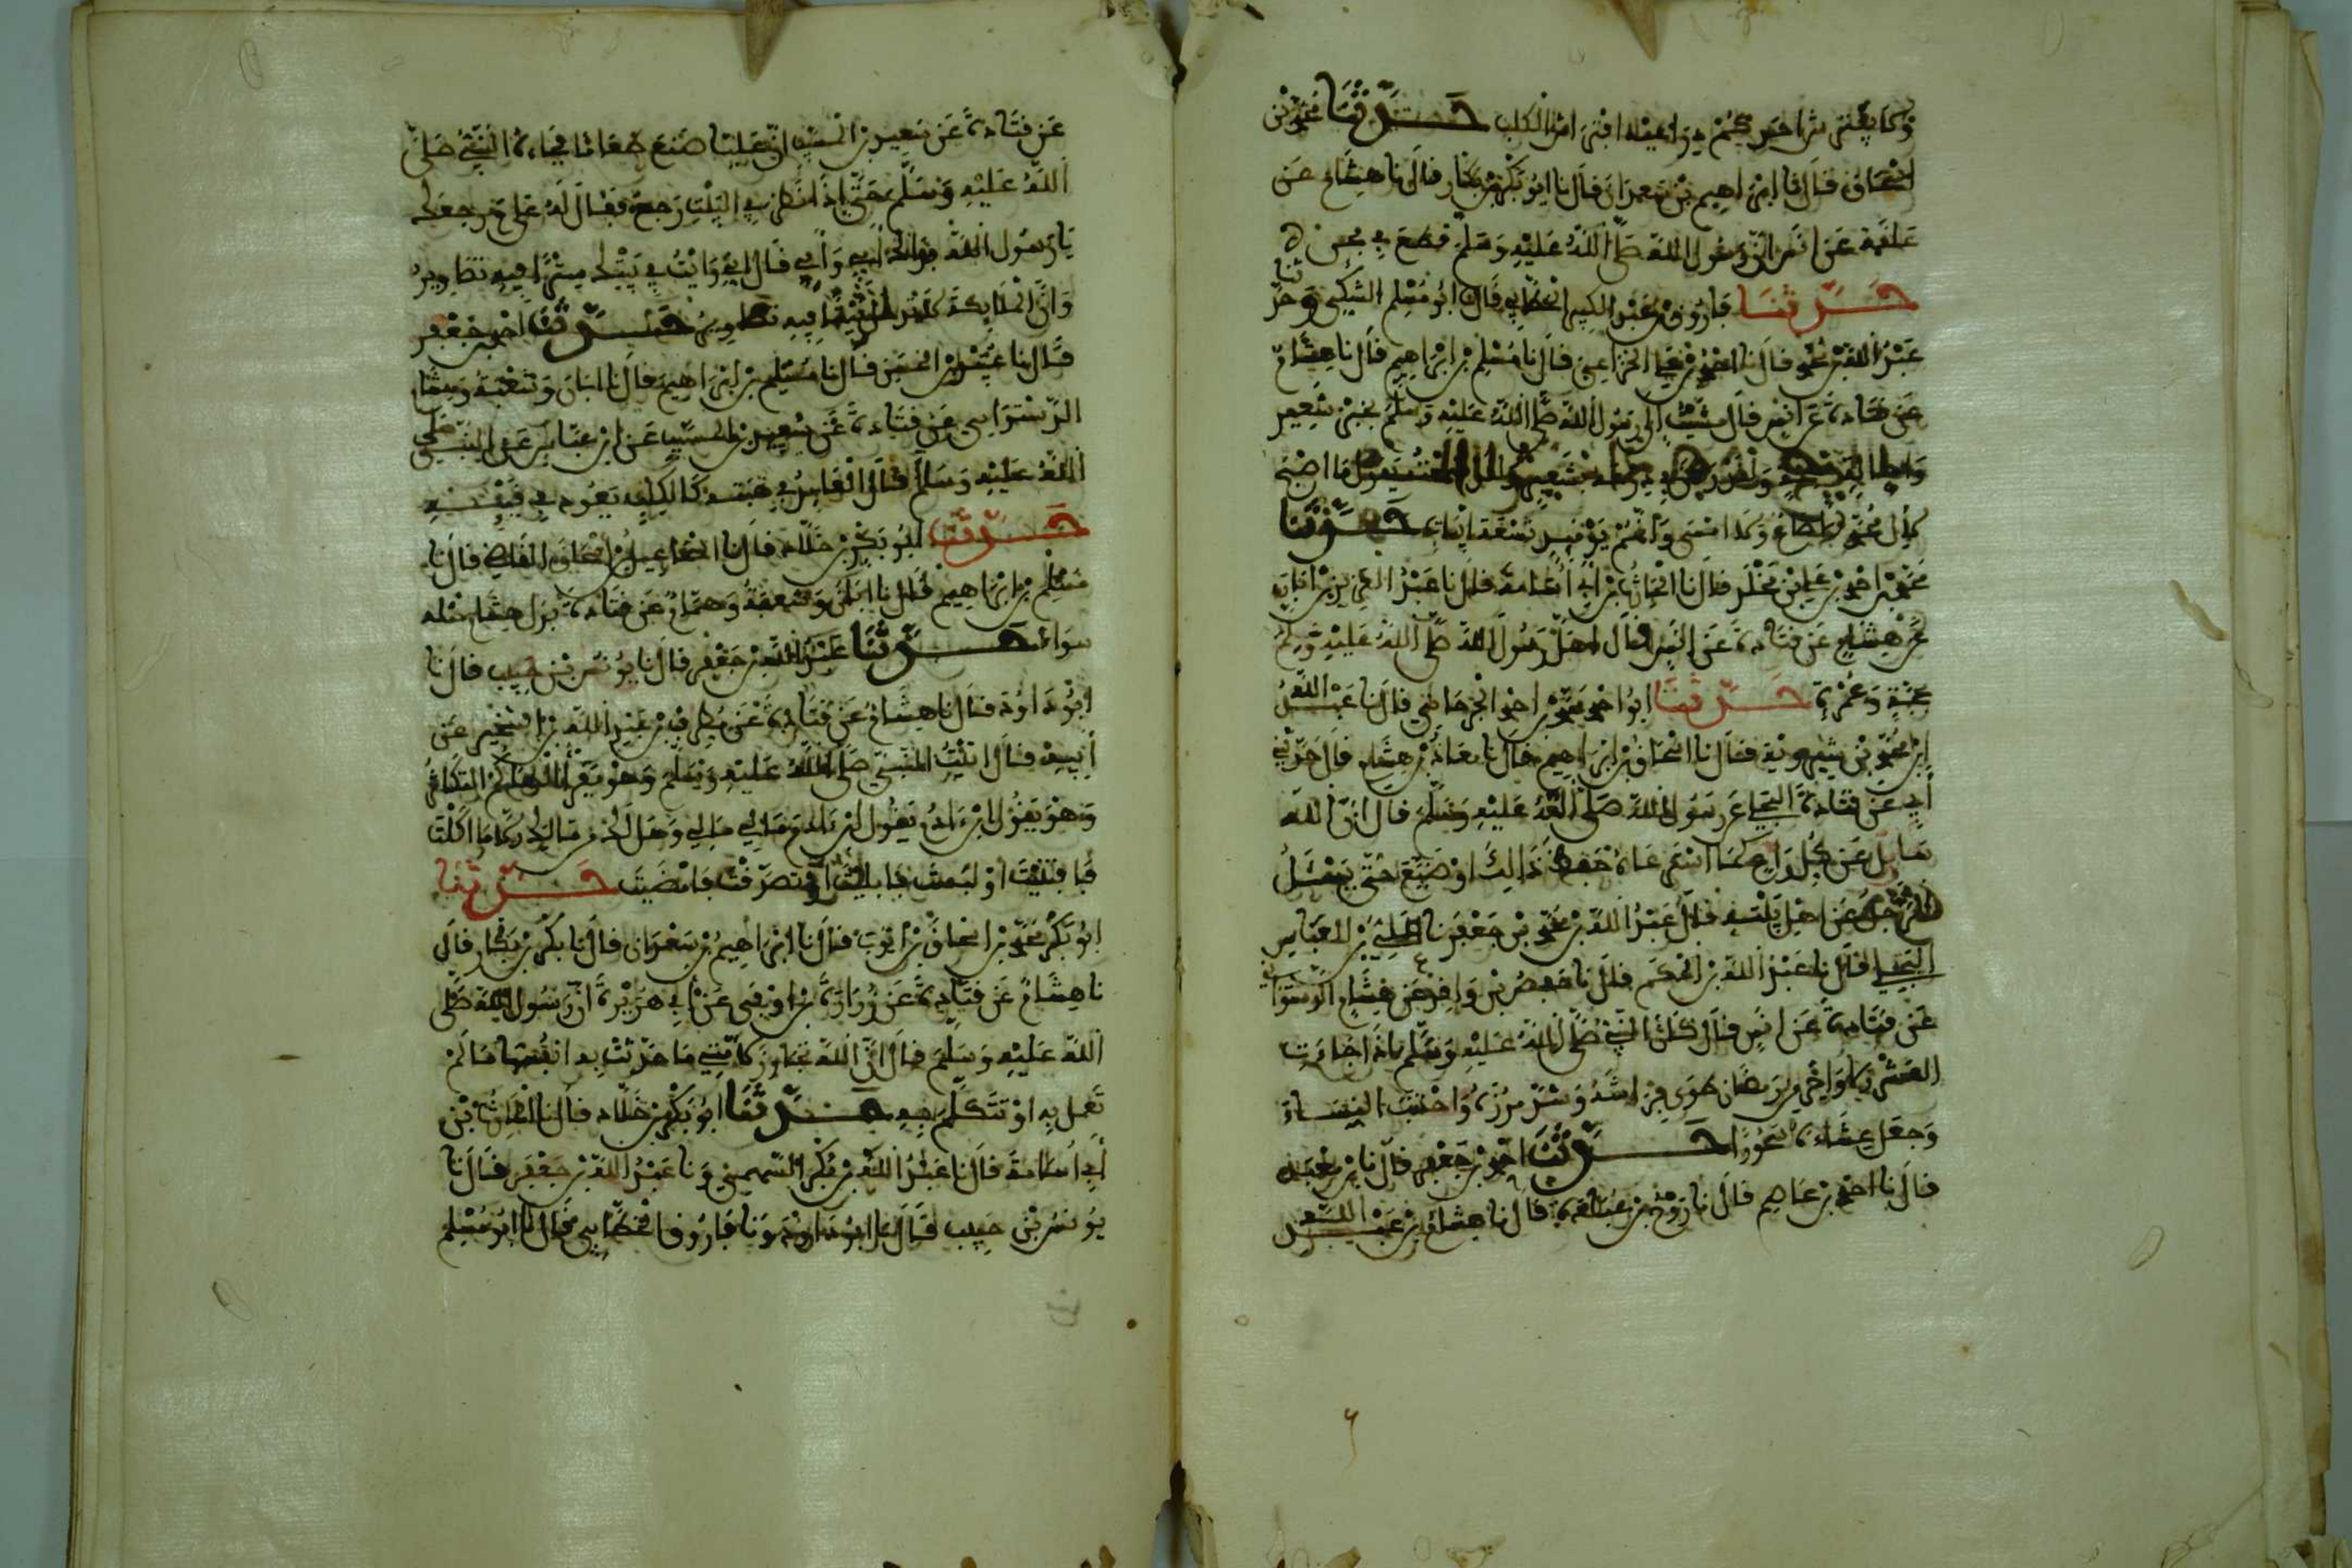 حدثنا محمد بن
اسحاق قال نا ابراهيم بن سعدان قال نا ابو بكر بن بكار قال نا هشام عن
عن انس ان رسول الله صلى الله عليه وسلم قطع في مجن
حدثنا فاروق بن عبد الكبير الخطابي قال نا ابو مسلم الكشي وحدثنا
عبد الله بن محمد قال نا احمد بن الخزاعي قال نا مسلم بن ابراهيم قال نا هشام
عن قتادة عن انس قال مشيت الى رسول الله صلى الله عليه وسلم بخبز شعير
ولقد رهن درعه بشعير يقول ما اصبح
لال محمد صاع ولا امسى وانهم يومئذ تسعة ابيات حدثنا
محمد بن احمد بن علي بن مخلد قال نا الحارث بن ابي اسامة قال نا عبد العزيز بن ابان
عن هشام عن قتادة عن انس قال اهل رسول الله صلى الله عليه وسلم
بحجة وعمرة حدثنا ابو احمد محمد بن احمد الجرجاني قال نا عبد الله
ابن محمد بن شيرويه قال نا اسحاق بن ابراهيم قال نا معاذ بن هشام قال حدثني
ابي عن قتادة عن رسول الله صلى الله عليه وسلم قال ان الله
سايل عن كل راع عما استرعاه حفظ ذالك او ضيع حتى يسئل
الرجل عن اهل بيته قال عبد الله بن محمد بن جعفر نا علي بن العباس
البجلي قال نا عبد الله بن الحكم قال نا حفص بن واقد عن هشام الدستوائي
عن قتادة عن انس قال كان النبي صلى الله عليه وسلم اذا جاءت
العشر الاواخر من رمضان طوى فراشه وشد مئزره واجتنب النساء
وجعل عشاءه سحورا حدثنا احمد بن جعفر قال نا بن
قال نا احمد بن عاصم قال نا روح بن عبادة قال نا هشام بن عبد الله
عن قتادة عن سعيد بن المسيب ان عليا صنع طعاما فجاءه النبي صلى
الله عليه وسلم حتى اذا نظر في البيت رجع فقال له علي ما رجعك
يا رسول الله بابي وامي قال اني رايت في بيتك سترا فيه تصاوير
وان الملائكة لا تدخل بيتا فيه تصاوير حدثنا احمد بن جعفر
قال نا الحسن قال نا مسلم بن ابراهيم قال نا ابان وشعبة وهشام
الدستوائي عن قتادة عن سعيد بن المسيب عن ابن عباس عن النبي صلى
الله عليه وسلم قال العايد في هبته كالكلب يعود في قيئه
حدثنا ابو بكر بن خلاد قال نا اسماعيل بن اسحاق القاضي قال نا
مسلم بن ابراهيم قال نا ابان وشعبة وهمام عن قتادة بدل هشام مثله
سواء حدثنا عبد الله بن جعفر قال نا يونس بن حبيب قال نا
ابو داود قال نا هشام عن قتادة عن مطرف بن عبد الله بن الشخير عن
ابيه قال اتيت النبي صلى الله عليه وسلم وهو يقرا الهاكم التكاثر
وهو يقول ابن ءادم مالي مالي وهل لك من مالك الا ما اكلت
فافنيت او لبست فابليت او تصدقت فامضيت حدثنا
ابو بكر محمد بن اسحاق بن ايوب قال نا ابراهيم بن سعدان قال نا بكر بن بكار قال
نا هشام عن قتادة عن زرارة بن اوفى عن ابي هريرة ان رسول الله صلى
الله عليه وسلم قال ان الله تجاوز لامتي ما حدثت به انفسها ما لم
تعمل به او تتكلم به حدثنا ابو بكر بن خلاد قال نا الحارث بن
ابي اسامة قال نا عبد الله بن بكر السهمي ونا عبد الله بن جعفر قال نا
يونس بن حبيب قال نا ابو داود ونا فاروق الخطابي قال نا ابو مسلم